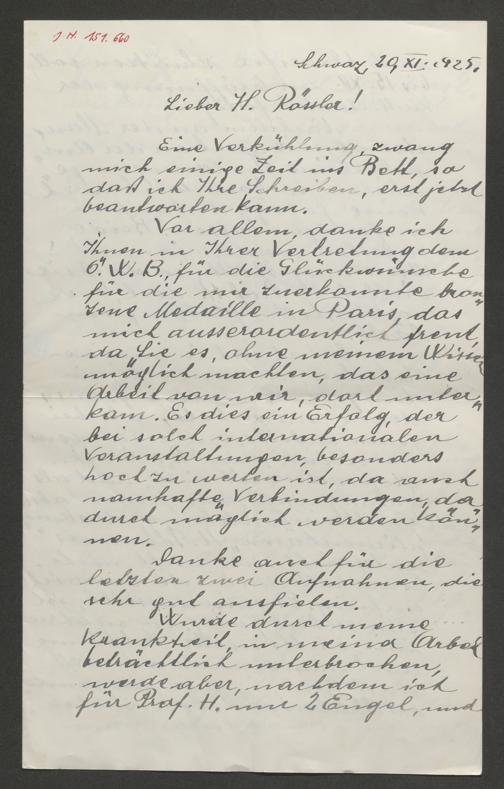 J.N. 151.660
Schwaz, 29. XI. 1925.
Lieber H. Rössler!
Eine Verkühlung, zwang
mich einige Zeit ins Bett, so
daß ich Ihre Schreiben, erst jetzt
beantworten kann.
Vor allem, danke ich
Ihnen in Ihrer Vertretung dem
Ö. W. B., für die Glückwünsche
für die mir zuerkannte bron„
zene Medaille in Paris, das
mich ausserordentlich freut,
da Sie es, ohne meinem Wissen
möglich machten, das eine
Arbeit von mir, dort unter„
kam. Es dies ein Erfolg, der
bei solch internationalen
Veranstaltungen, besonders
hoch zu werten ist, da auch
namhafte, Verbindungen, da
durch möglich werden kön„
nen.
Danke auch für die
letzten zwei Aufnahmen, die
sehr gut ausfielen.
Wurde durch meine
Krankheit, in meiner Arbeit
beträchtlich unterbrochen,
werde aber, nachdem ich
für Prof. H. nur 2 Engel, und